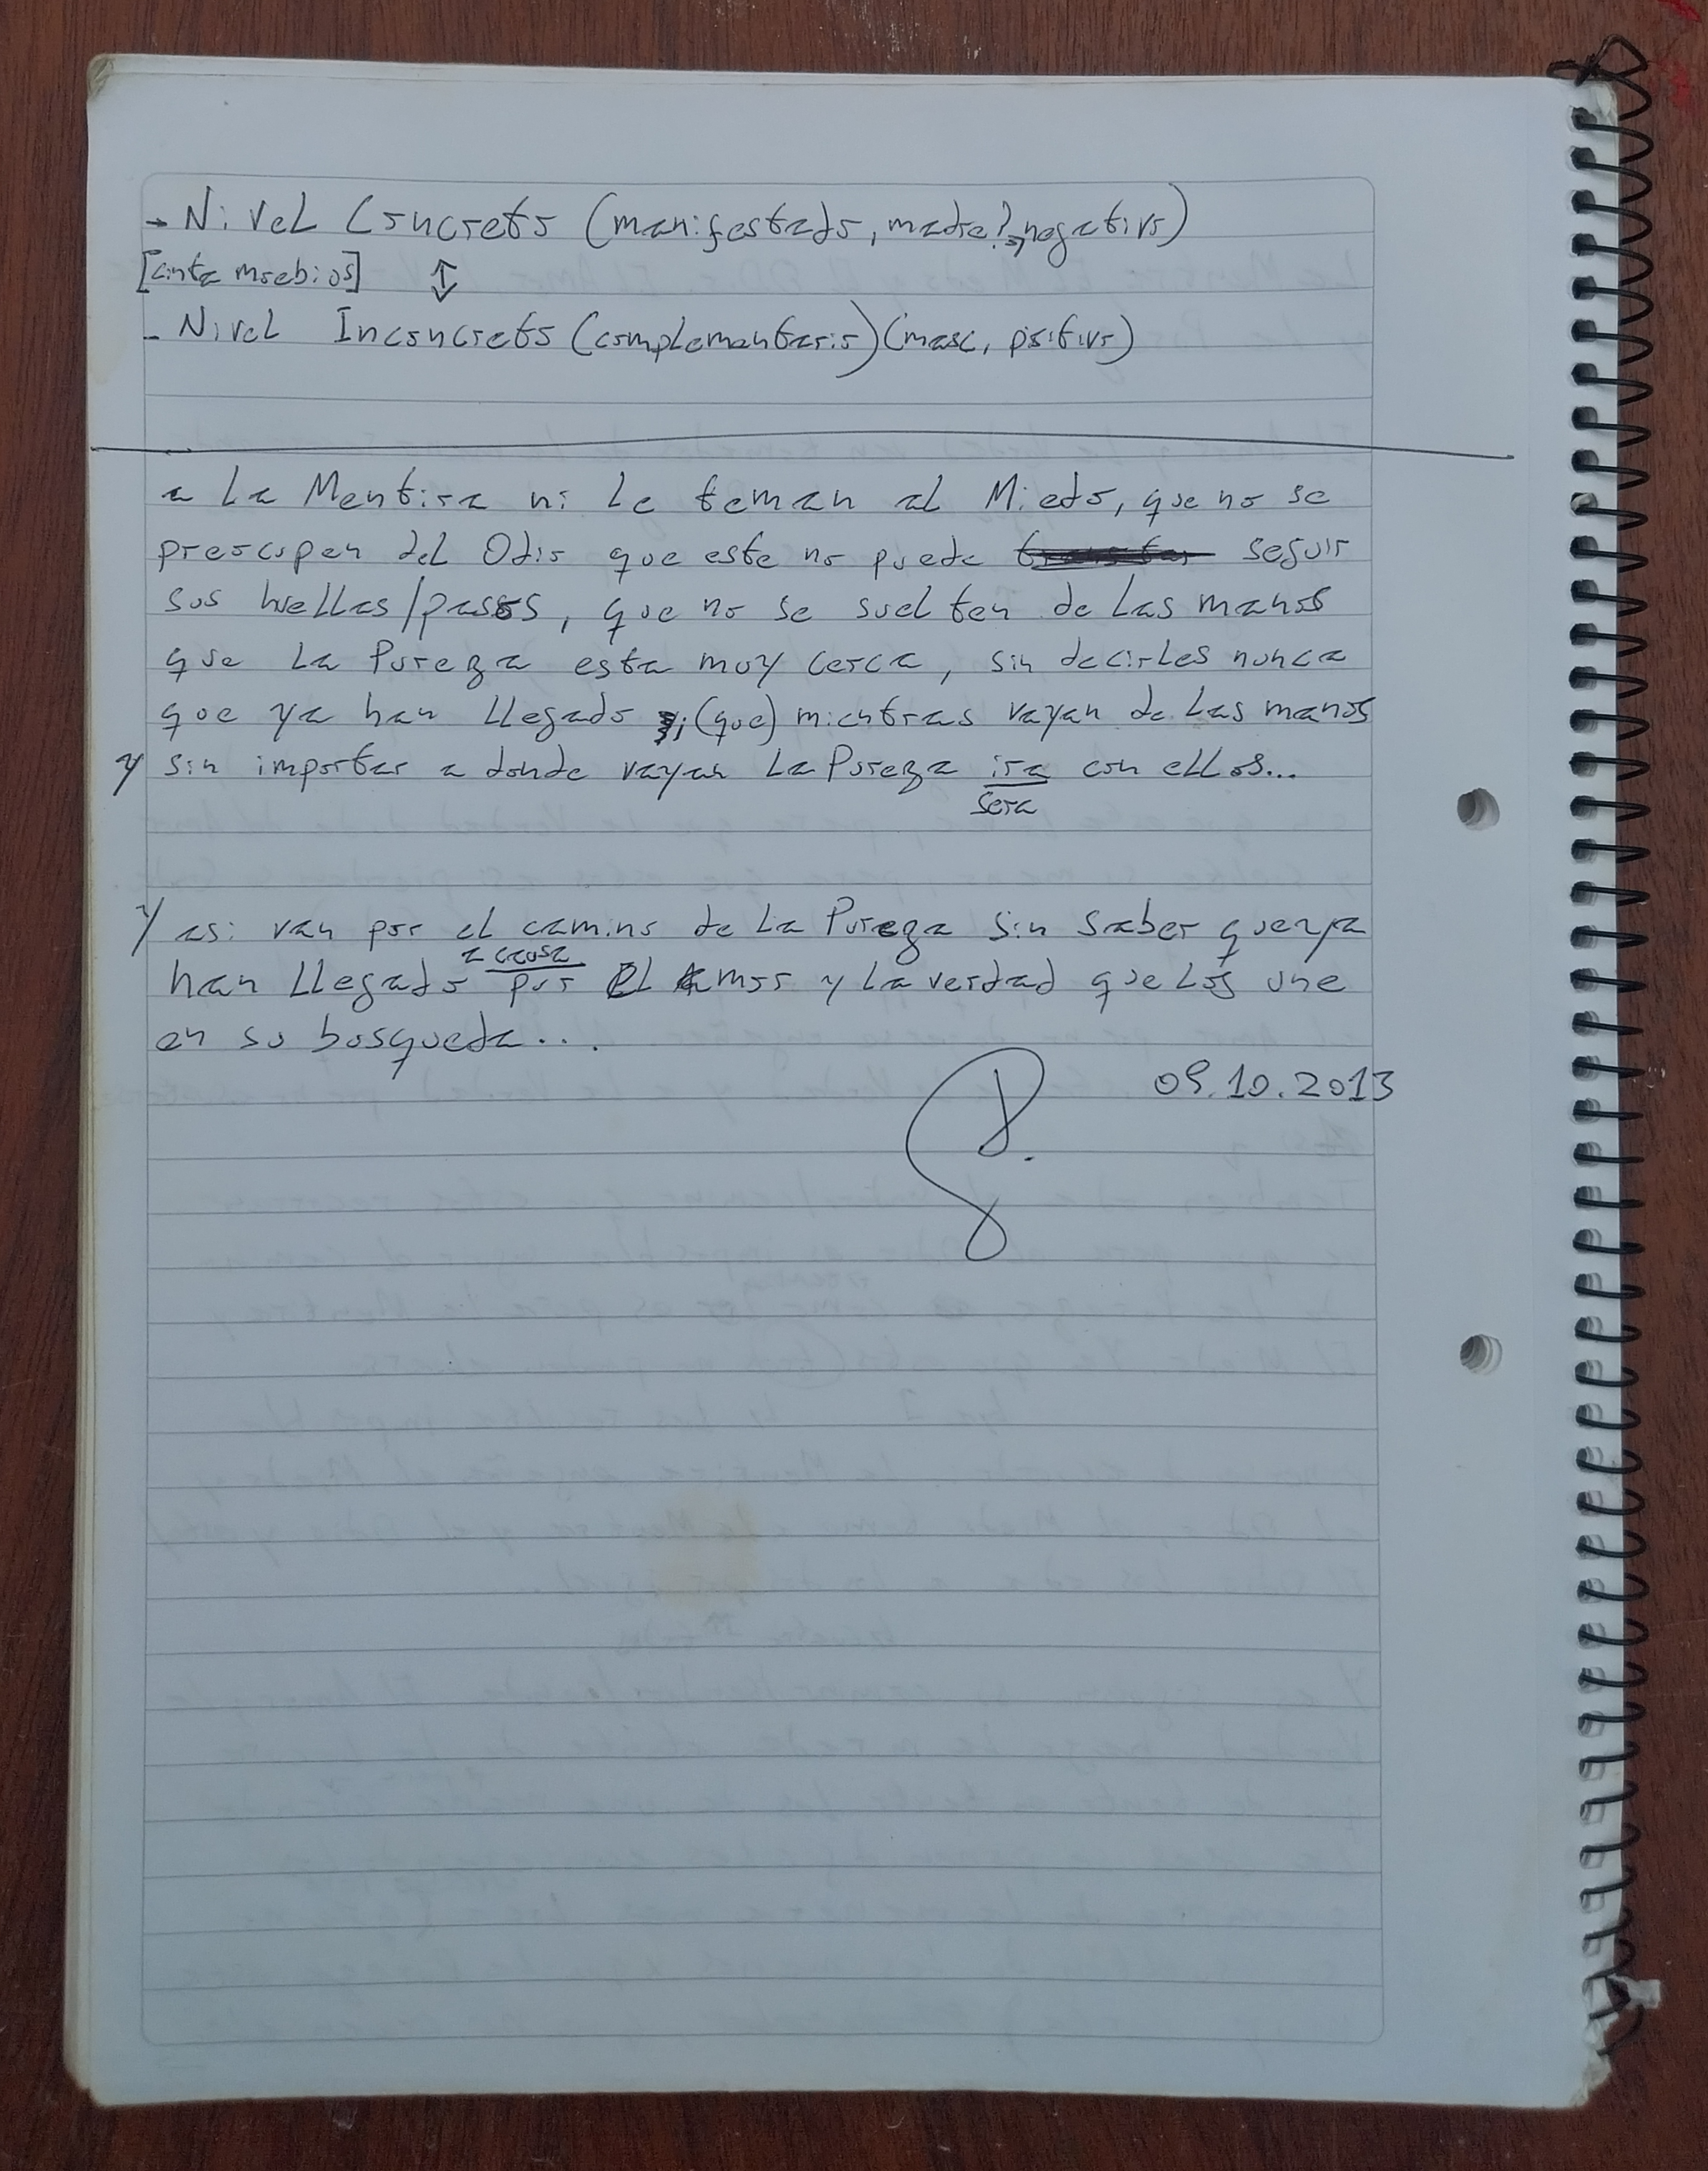 - Nivel Concreto (manifestado, madre?, negativo)
[cinta moebios] ↕
- Nivel Inconcreto (complementario) (masc, positivo)
a la Mentira ni le teman al Miedo, que no se
preocupen del Odio que este no puede seguir
sus huellas/pasos, que no se suelten de las manos
que la Pureza esta muy cerca, sin decirles nunca
que ya han llegado, (que) mientras vayan de las manos
y sin importar a donde vayan la Pureza ira con ellos...
sera
Y asi van por el camino de la Pureza sin saber que ya
a causa
han llegado por el Amor y la verdad que los une
en su busqueda...
09.10.2013